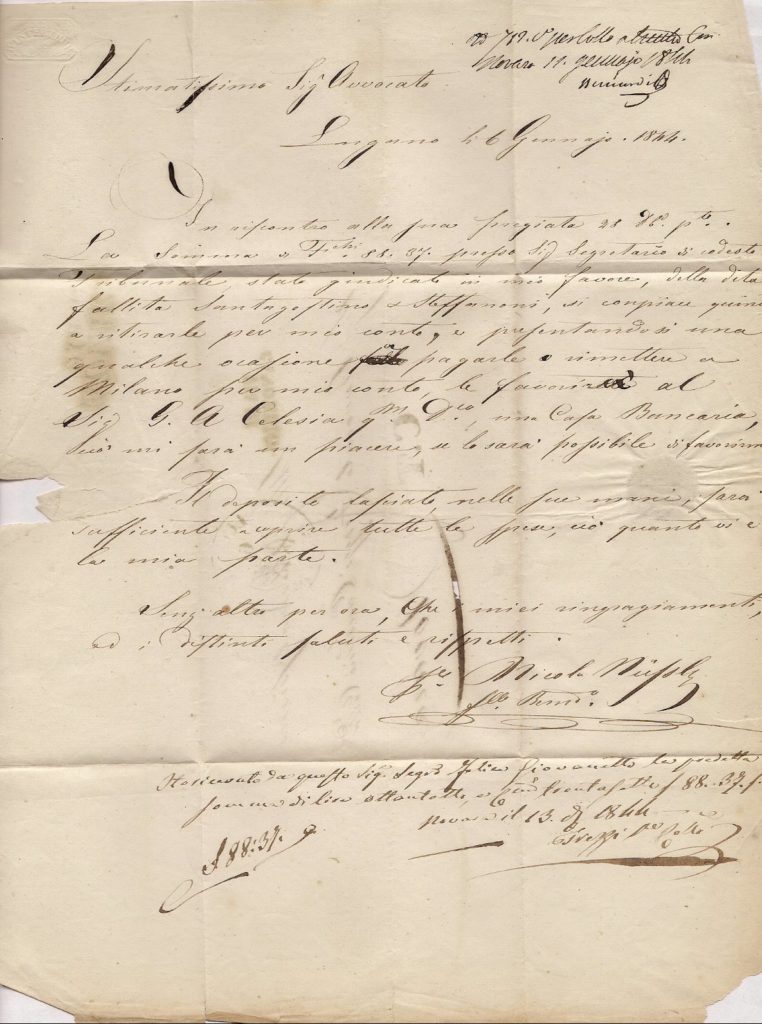 Stimatissimo Sig Avvocato
Novara 11. gennajo 1844
Lugano li 6 Gennajo. 1844.
In riscontro alla sua pregiata 28
La Somma 88. 37. presso Sig Segretario di codesto
Tribunale, stato giudicato in mio favore, della dita
fallita Santagostino & Steffanoni, si conpiace
a ritirarle per mio conto, e presentandosi una
qualche ocasione pagarle o rimettere a
Milano per mio conto, le al
Sig G. A Celesia qm Dco, una Casa Bancaria,
ciò mi sarà un piacere, se lo sarà possibile di
Il deposito lasciato, nelle sue mani, sarà
sufficiente coprire tutte le spese, ciò quanto vi è
la mia parte.
Senz altro per ora, che i miei ringragiamenti,
ed i distinti saluti e rispetti.
Nicola Nüssly
Ho ricevuto da questo Sig. Segro Felice Giovanetti la predetta
somma di lire ottantotto, e trentasette £ 88. 37.
Novara il 13. 1844
£ 88: 37.